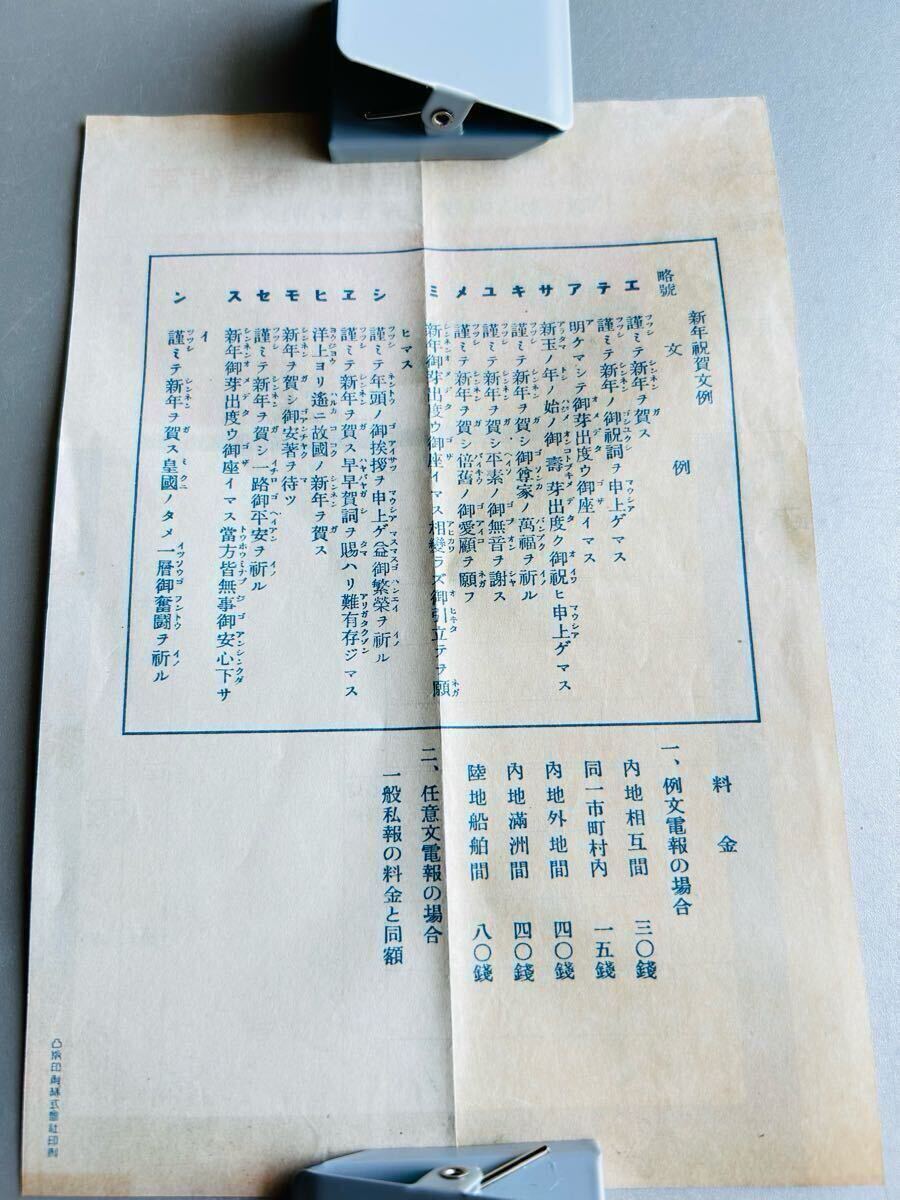 新年祝賀文例
略號 文例
エ 謹ミテ新年ヲ賀ス
テ 謹ミテ新年ノ御祝詞ヲ申上ゲマス
ア 明ケマシテ御芽出度ウ御座イマス
サ 新玉ノ年ノ始ノ御壽芽出度ク御祝ヒ申上ゲマス
キ 謹ミテ新年ヲ賀シ御尊家ノ萬福ヲ祈ル
ユ 謹ミテ新年ヲ賀シ平素ノ御無音ヲ謝ス
メ 謹ミテ新年ヲ賀シ倍舊ノ御愛顧ヲ願フ
ミ 新年御芽出度ウ御座イマス相變ラズ御引立テヲ願
ヒマス
シ 謹ミテ年頭ノ御挨拶ヲ申上ゲ益御繁榮ヲ祈ル
ヱ 謹ミテ新年ヲ賀ス早早賀詞ヲ賜ハリ難有存ジマス
ヒ 洋上ヨリ遙ニ故國ノ新年ヲ賀ス
モ 新年ヲ賀シ御安著ヲ待ツ
セ 謹ミテ新年ヲ賀シ一路御平安ヲ祈ル
ス 新年御芽出度ウ御座イマス當方皆無事御安心下サ
イ
ン 謹ミテ新年ヲ賀ス皇國ノタメ一層御奮鬪ヲ祈ル
料金
一、例文電報の場合
內地相互間 三〇錢
同一市町村內 一五錢
內地外地間 四〇錢
內地滿洲間 四〇錢
陸地船舶間 八〇錢
二、任意文電報の場合
一般私報の料金と同額